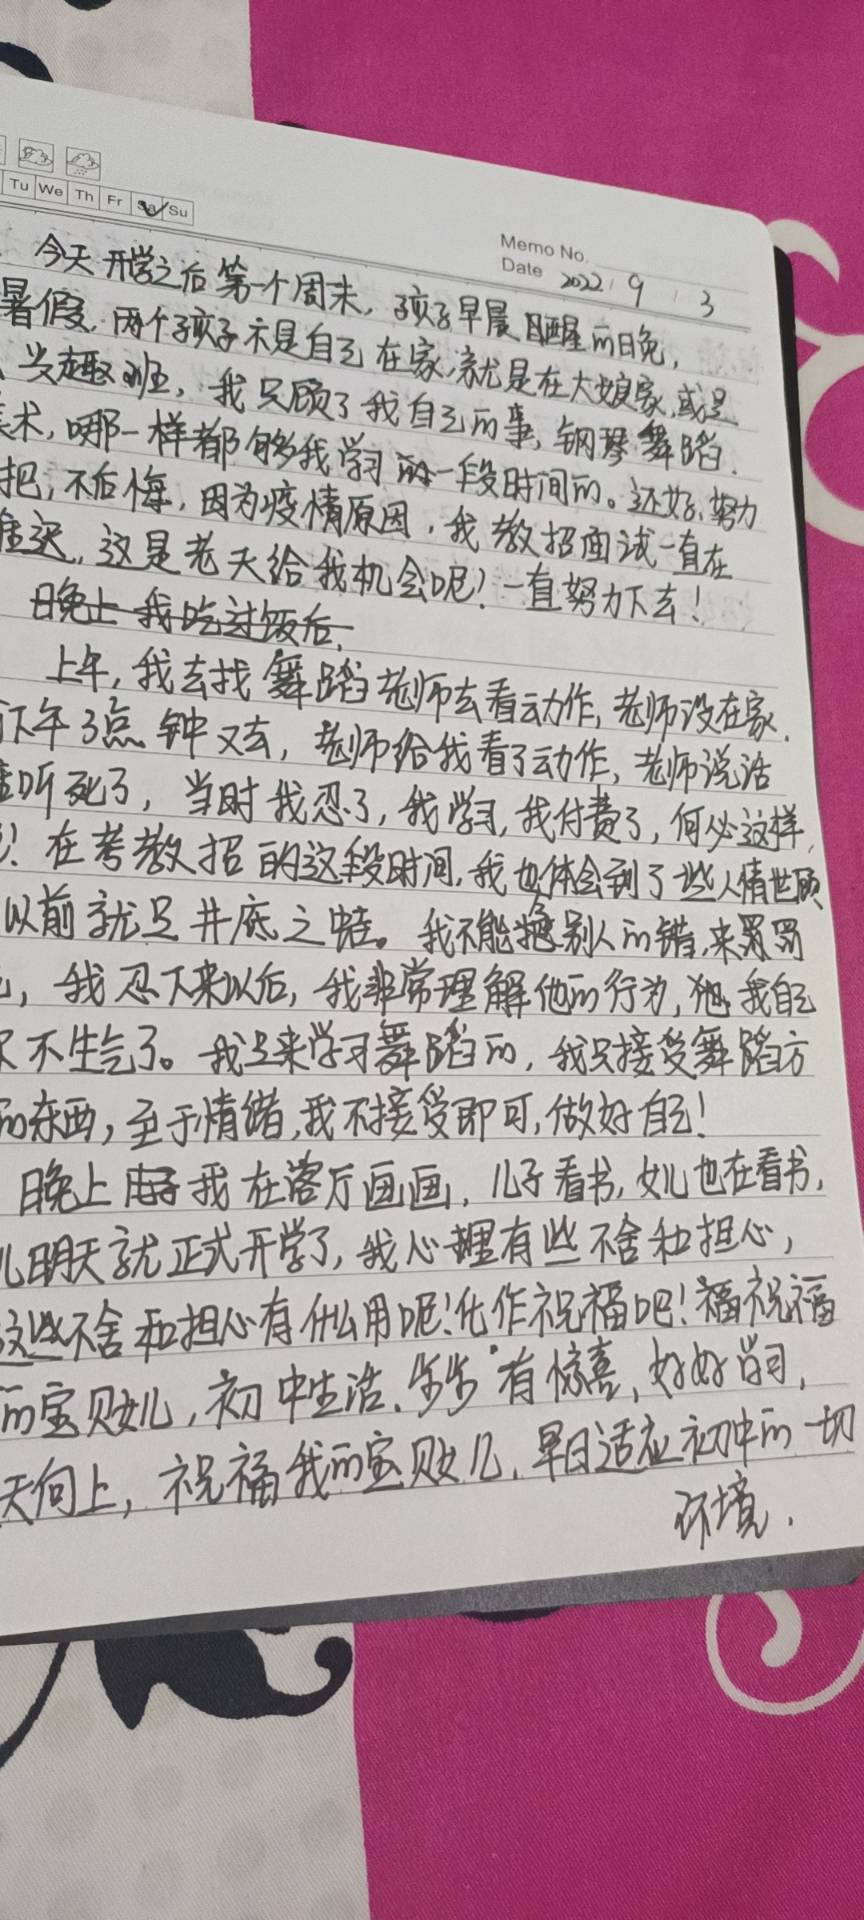 Tu We Th Fr Sa Su
Memo No.
Date 2022 9 3
今天开学之后第一个周末，孩子早晨醒的晚，
暑假，两个孩子不是自己在家，就是在大娘家，或是
兴趣班，我只顾了我自己的事，钢琴舞蹈，
美术，哪一样都够我学习的一段时间的。还好，努力
把，不后悔，因为疫情原因，我教招面试一直在
推迟，这是老天给我机会呢！一直努力下去！
晚上我吃过饭后，
上午，我去找舞蹈老师去看动作，老师没在家，
下午3点钟又去，老师给我看了动作，老师说话
难听死了，当时我忍了，我学习，我付费了，何必这样，
！在考教招的这段时间，我也体会到了些人情世顾
以前就是井底之蛙。我不能拿别人的错，来
，我忍下来以后，我非常理解他的行为，我自己
不生气了。我是来学习舞蹈的，我只接受舞蹈方
的东西，至于情绪，我不接受即可，做好自己！
晚上我在客厅画画，儿子看书，女儿也在看书，
儿明天就正式开学了，我心里有些不舍和担心，
这些不舍和担心有什么用呢！化作祝福吧！祝福
的宝贝女儿，初中生活，步步有惊喜，好好学习，
天向上，祝福我的宝贝女儿，早日适应初中的一切
环境，